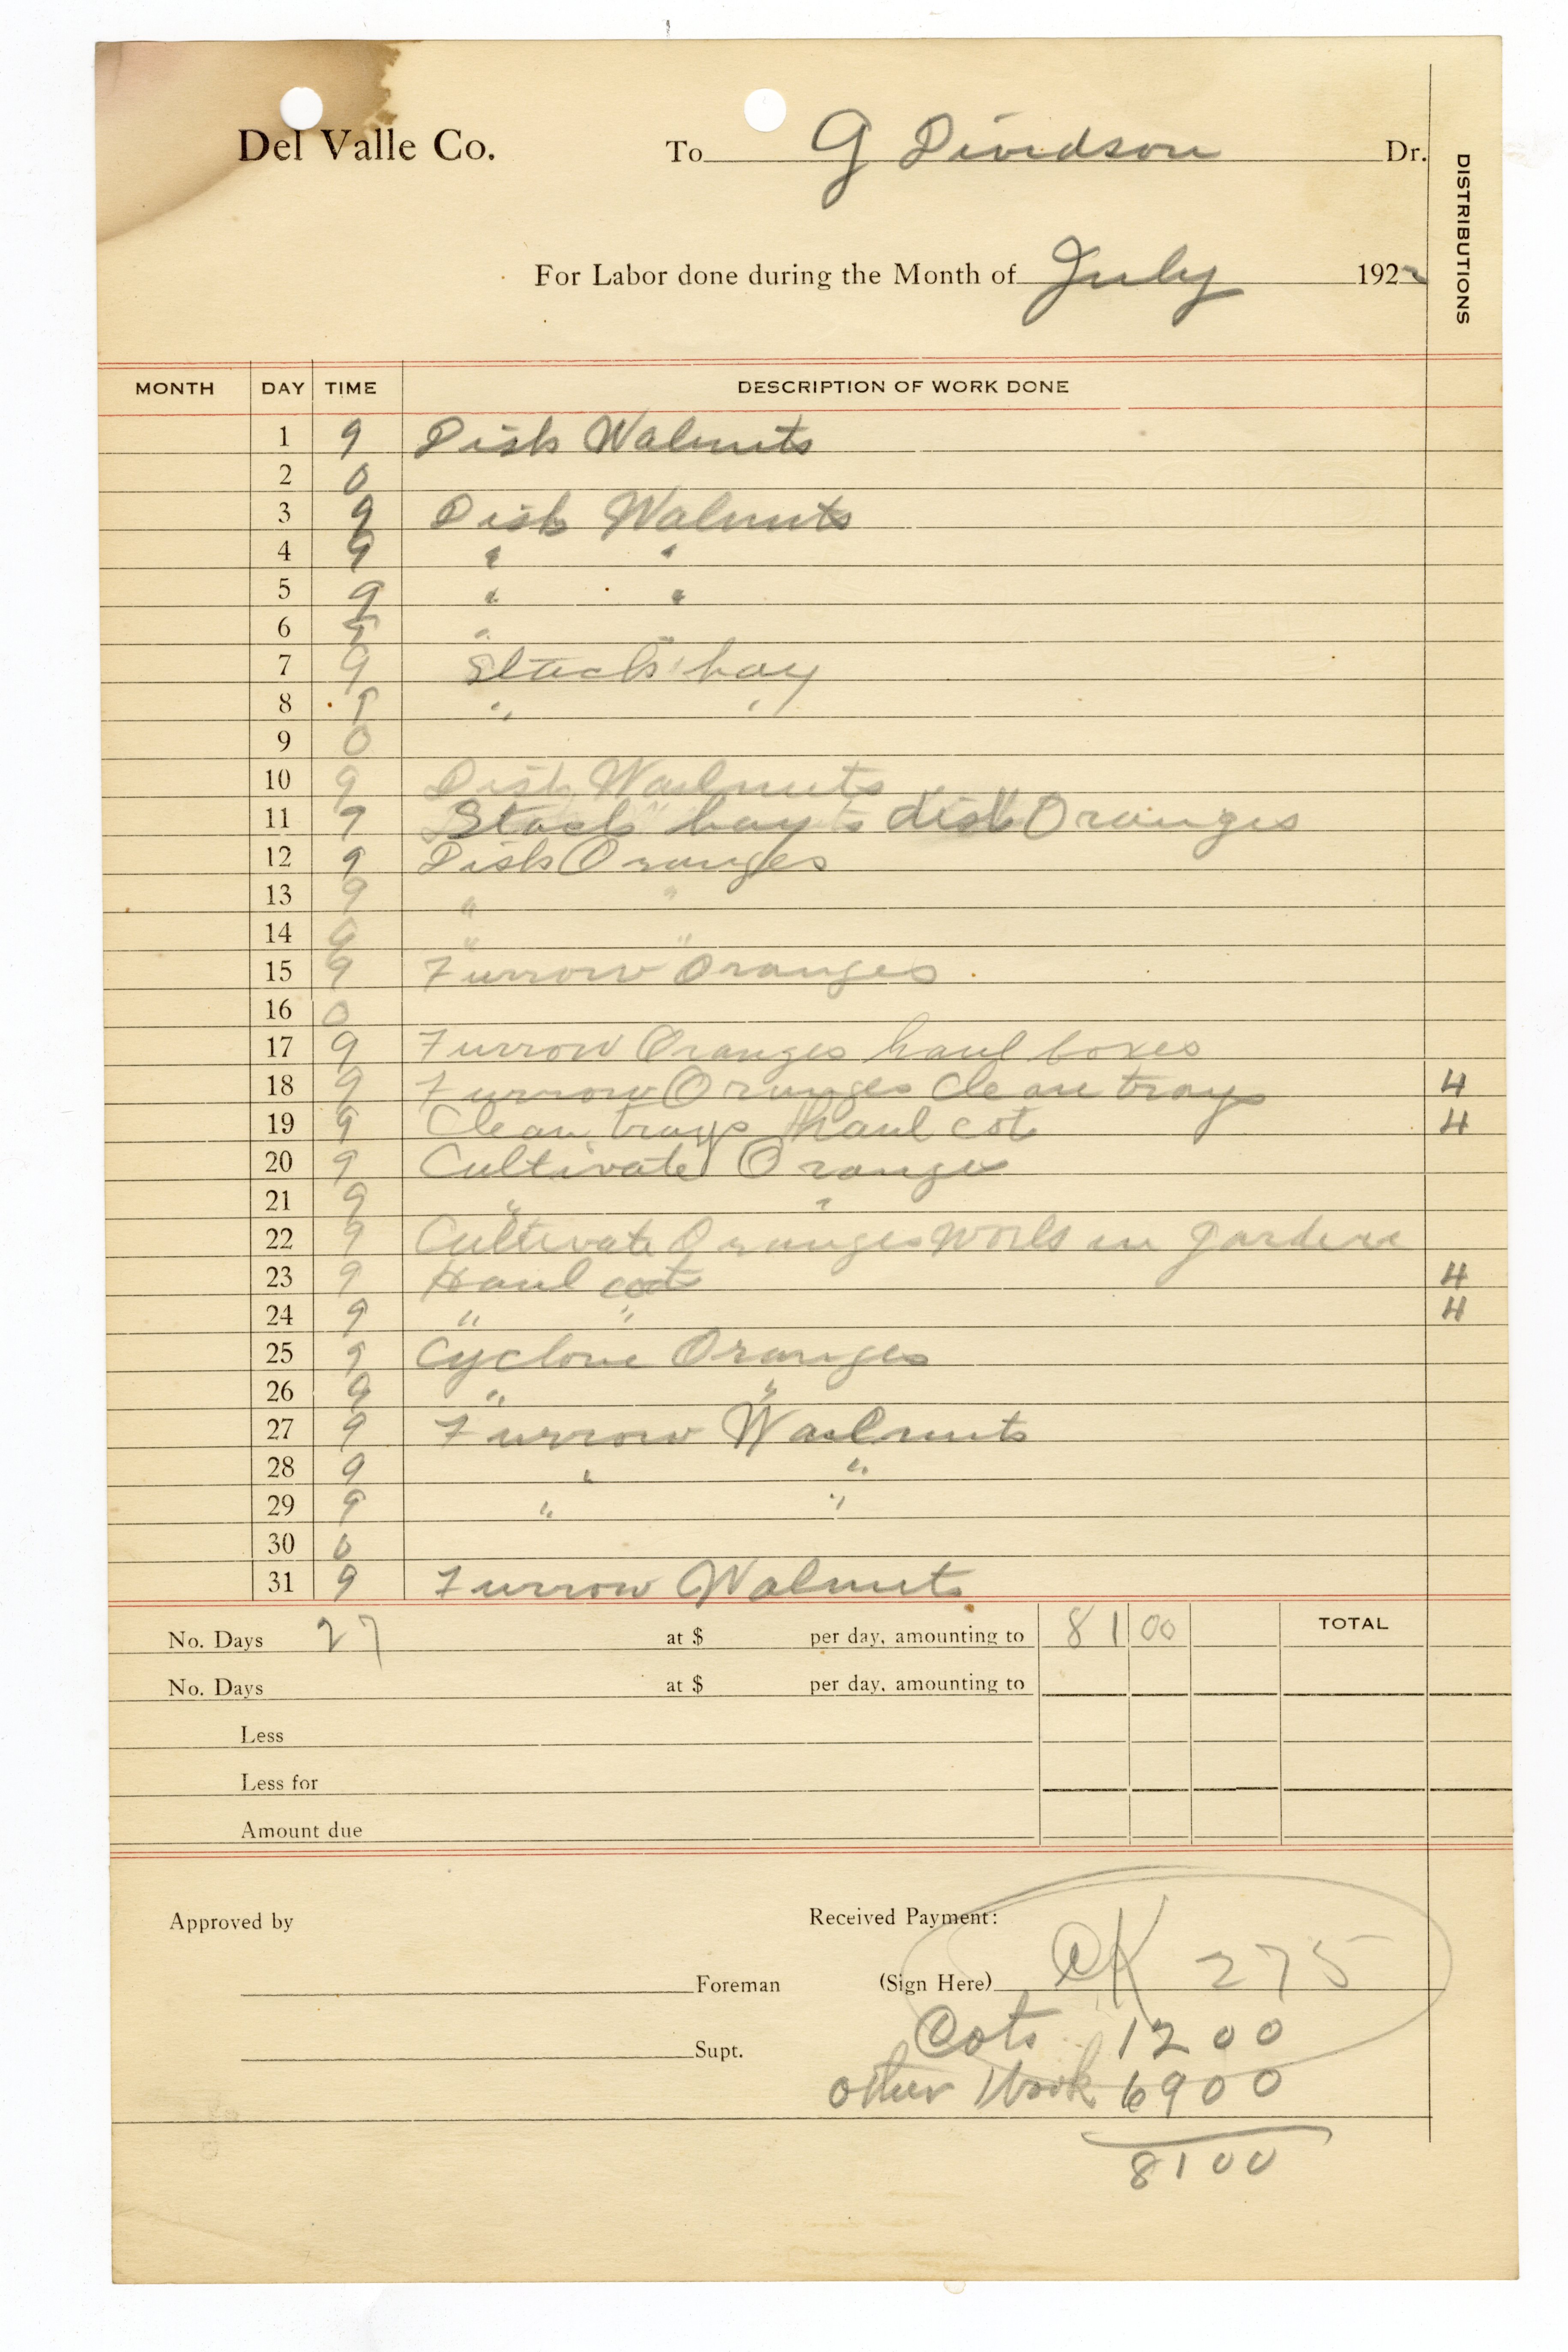 Del Valle Co. To G Davidson Dr.
DISTRIBUTIONS
For Labor done during the Month of July 1922
MONTH DAY TIME DESCRIPTION OF WORK DONE
1 9 Disk Walnuts
2 0
3 9 Disk Walnuts
4 9 " "
5 9 " "
6 "
7 9 Stack hay
8 9 " "
9 0
10 9 Disk Wallnuts
11 9 Stack hay & disk Oranges
12 9 Disk Oranges
13 9 " "
14 9 " "
15 9 Furrow Oranges
16 0
17 9 Furrow Oranges haul boxes
18 9 Furrow Oranges Clean trays 4
19 9 Clean trays haul cots 4
20 9 Cultivate Oranges
21 9 " "
22 9 Cultivate Oranges work in garden
23 9 Haul cots 4
24 9 " " 4
25 9 Cyclone Oranges
26 9 " "
27 9 Furrow Wallnuts
28 9 " "
29 9 " "
30 0
31 9 Furrow Walnuts
No. Days 27 at $ per day, amounting to 81 00 TOTAL
No. Days at $ per day, amounting to
Less
Less for
Amount due
Approved by Received Payment:
Foreman (Sign Here) CK 275
Supt. Cots 12 00
other Work 69 00
81 00